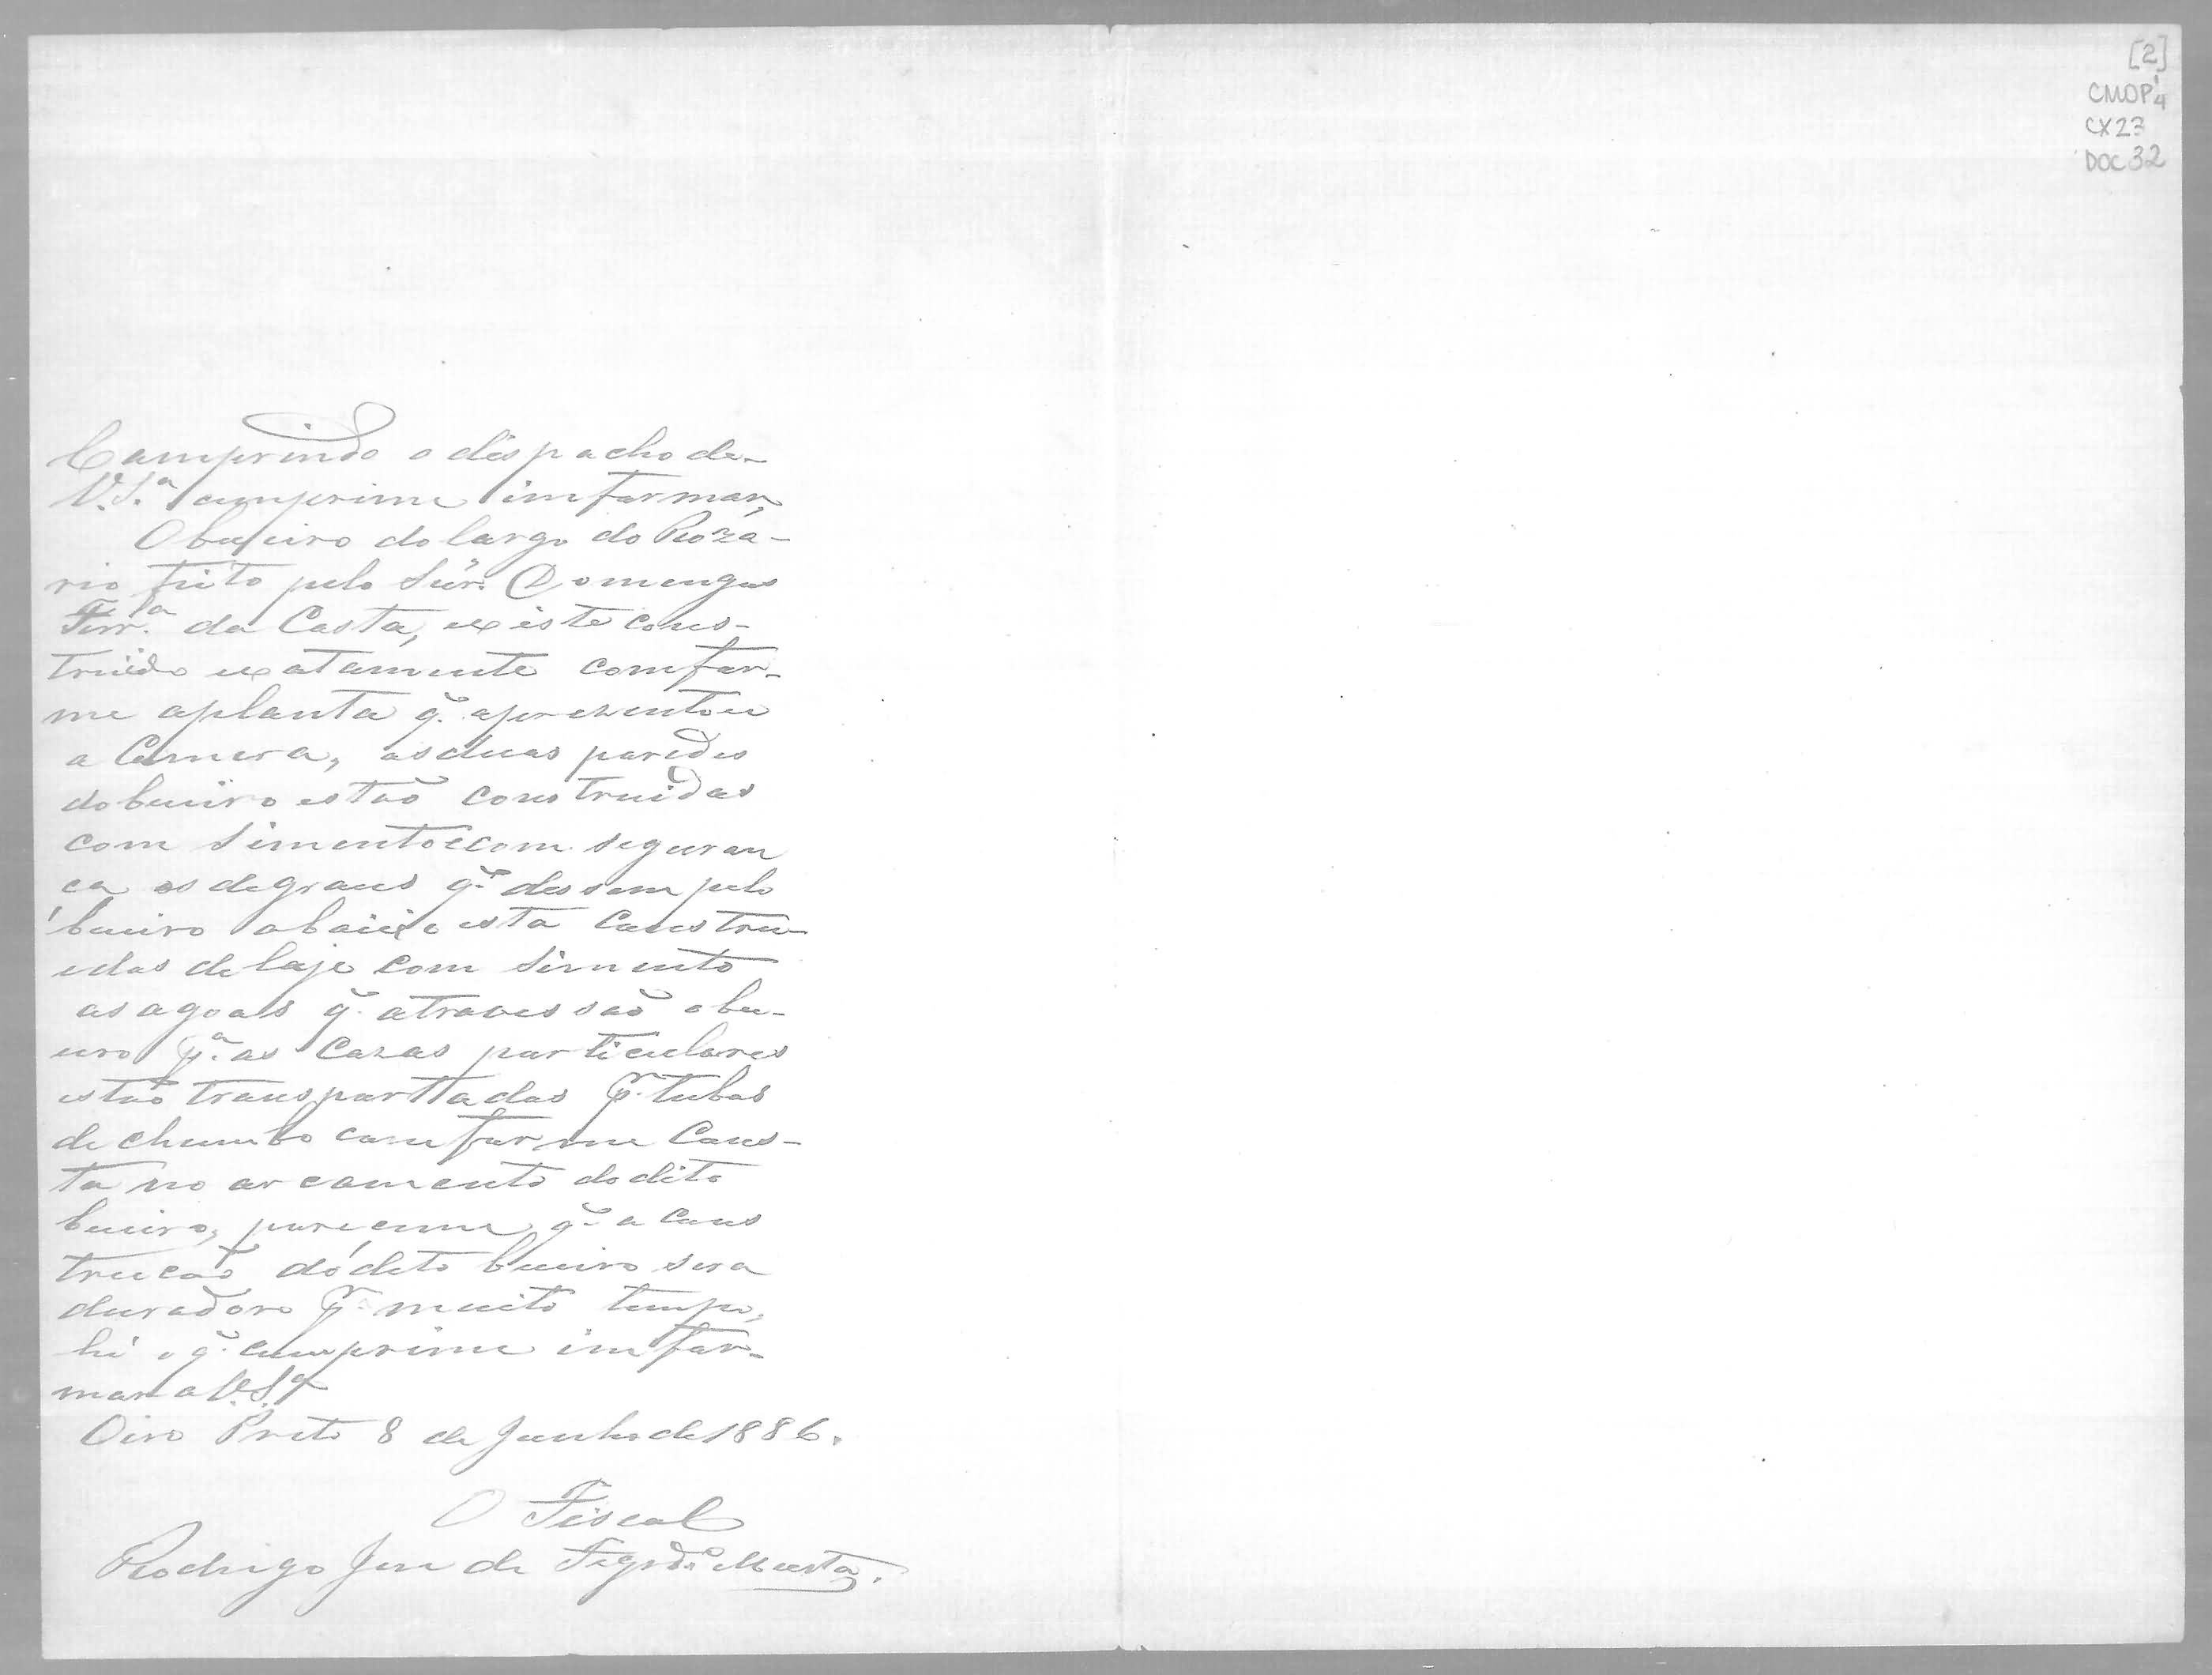 [2]
CMOP 4
CX23
DOC 32
Comprindo o despacho de
V.S.ª cumprime imformar,
O bueiro do largo do Roza-
rio feito pelo Snr. Domengos
Ferr.ª da Costa, existe cons-
truido exatamente comfor-
me a planta q. aprezentou
a Camera, as duas paredes
do bueiro estaõ construidas
com simento e com seguran
ca os degraus q. dessem pelo
bueiro abaixo esta constru-
idos de laje com simento
as agoas q. atravessaõ o bu-
eiro p.ª as cazas particulares
estaõ transportadas p.r tubos
de chumbo comforme cons-
ta no arcamento do dito
bueiro, pareceme q. a cons
trucaõ do dito bueiro sera
duradoro p.r muito tempo,
hé o q. cumprime imfor-
mar a V.S.ª
Oiro Preto 8 de Junho de 1886.
O Fiscal
Rodrigo Jose de Figrd.º Murta.